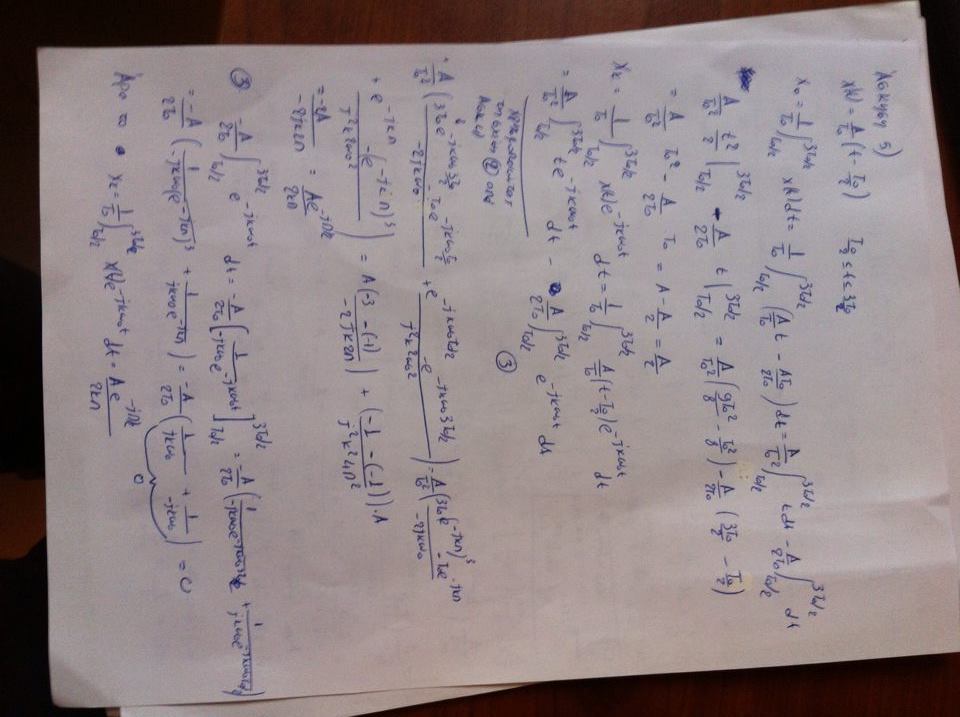 Άσκηση 5)
x(t) = A/T₀ (t - T₀/2) T₀/2 ≤ t ≤ 3T₀/2
X₀ = 1/T₀ ∫_{T₀/2}^{3T₀/2} x(t) dt = 1/T₀ ∫_{T₀/2}^{3T₀/2} (A/T₀ t - AT₀/2T₀) dt = A/T₀² ∫_{T₀/2}^{3T₀/2} t dt - A/2T₀ ∫_{T₀/2}^{3T₀/2} dt
A/T₀² t²/2 |_{T₀/2}^{3T₀/2} - A/2T₀ t |_{T₀/2}^{3T₀/2} = A/T₀² (9T₀²/8 - T₀²/8) - A/2T₀ (3T₀/2 - T₀/2)
= A/T₀² T₀² - A/2T₀ T₀ = A - A/2 = A/2
Xₖ = 1/T₀ ∫_{T₀/2}^{3T₀/2} x(t) e^{-jkω₀t} dt = 1/T₀ ∫_{T₀/2}^{3T₀/2} A/T₀ (t - T₀/2) e^{-jkω₀t} dt
= A/T₀² ∫_{T₀/2}^{3T₀/2} t e^{-jkω₀t} dt - A/2T₀ ∫_{T₀/2}^{3T₀/2} e^{-jkω₀t} dt
χρησιμοποιώντας
την σχέση ② από
③
A/T₀² (3T₀e^{-jkω₀3T₀/2} - T₀e^{-jkω₀T₀/2} / -2jkω₀ + e^{-jkω₀T₀/2} - e^{-jkω₀3T₀/2} / j²k²ω₀²) = A/T₀² (3T₀(e^{-jkπ})³ - T₀e^{-jkπ} / -2jkω₀
+ e^{-jkπ} - (e^{-jkπ})³ / j²k²ω₀²) = A(-3 - (-1) / -2jk2π) + (-1 - (-1) / j²k²4π²)·A
= -2A / -2jk2π = Ae^{-jπ/2} / 2kπ
③ -A/2T₀ ∫_{T₀/2}^{3T₀/2} e^{-jkω₀t} dt = -A/2T₀ [1 / -jkω₀e^{-jkω₀t}]_{T₀/2}^{3T₀/2} = -A/2T₀ (1 / -jkω₀e^{-jkω₀3T₀/2} + 1 / jkω₀e^{-jkω₀T₀/2})
= -A/2T₀ (1 / -jkω₀(e^{-jkπ})³ + 1 / jkω₀e^{-jkπ}) = -A/2T₀ (1/jkω₀ + 1/-jkω₀) = 0
0
Άρα το Xₖ = 1/T₀ ∫_{T₀/2}^{3T₀/2} x(t) e^{-jkω₀t} dt = Ae^{-jπ/2} / 2kπ